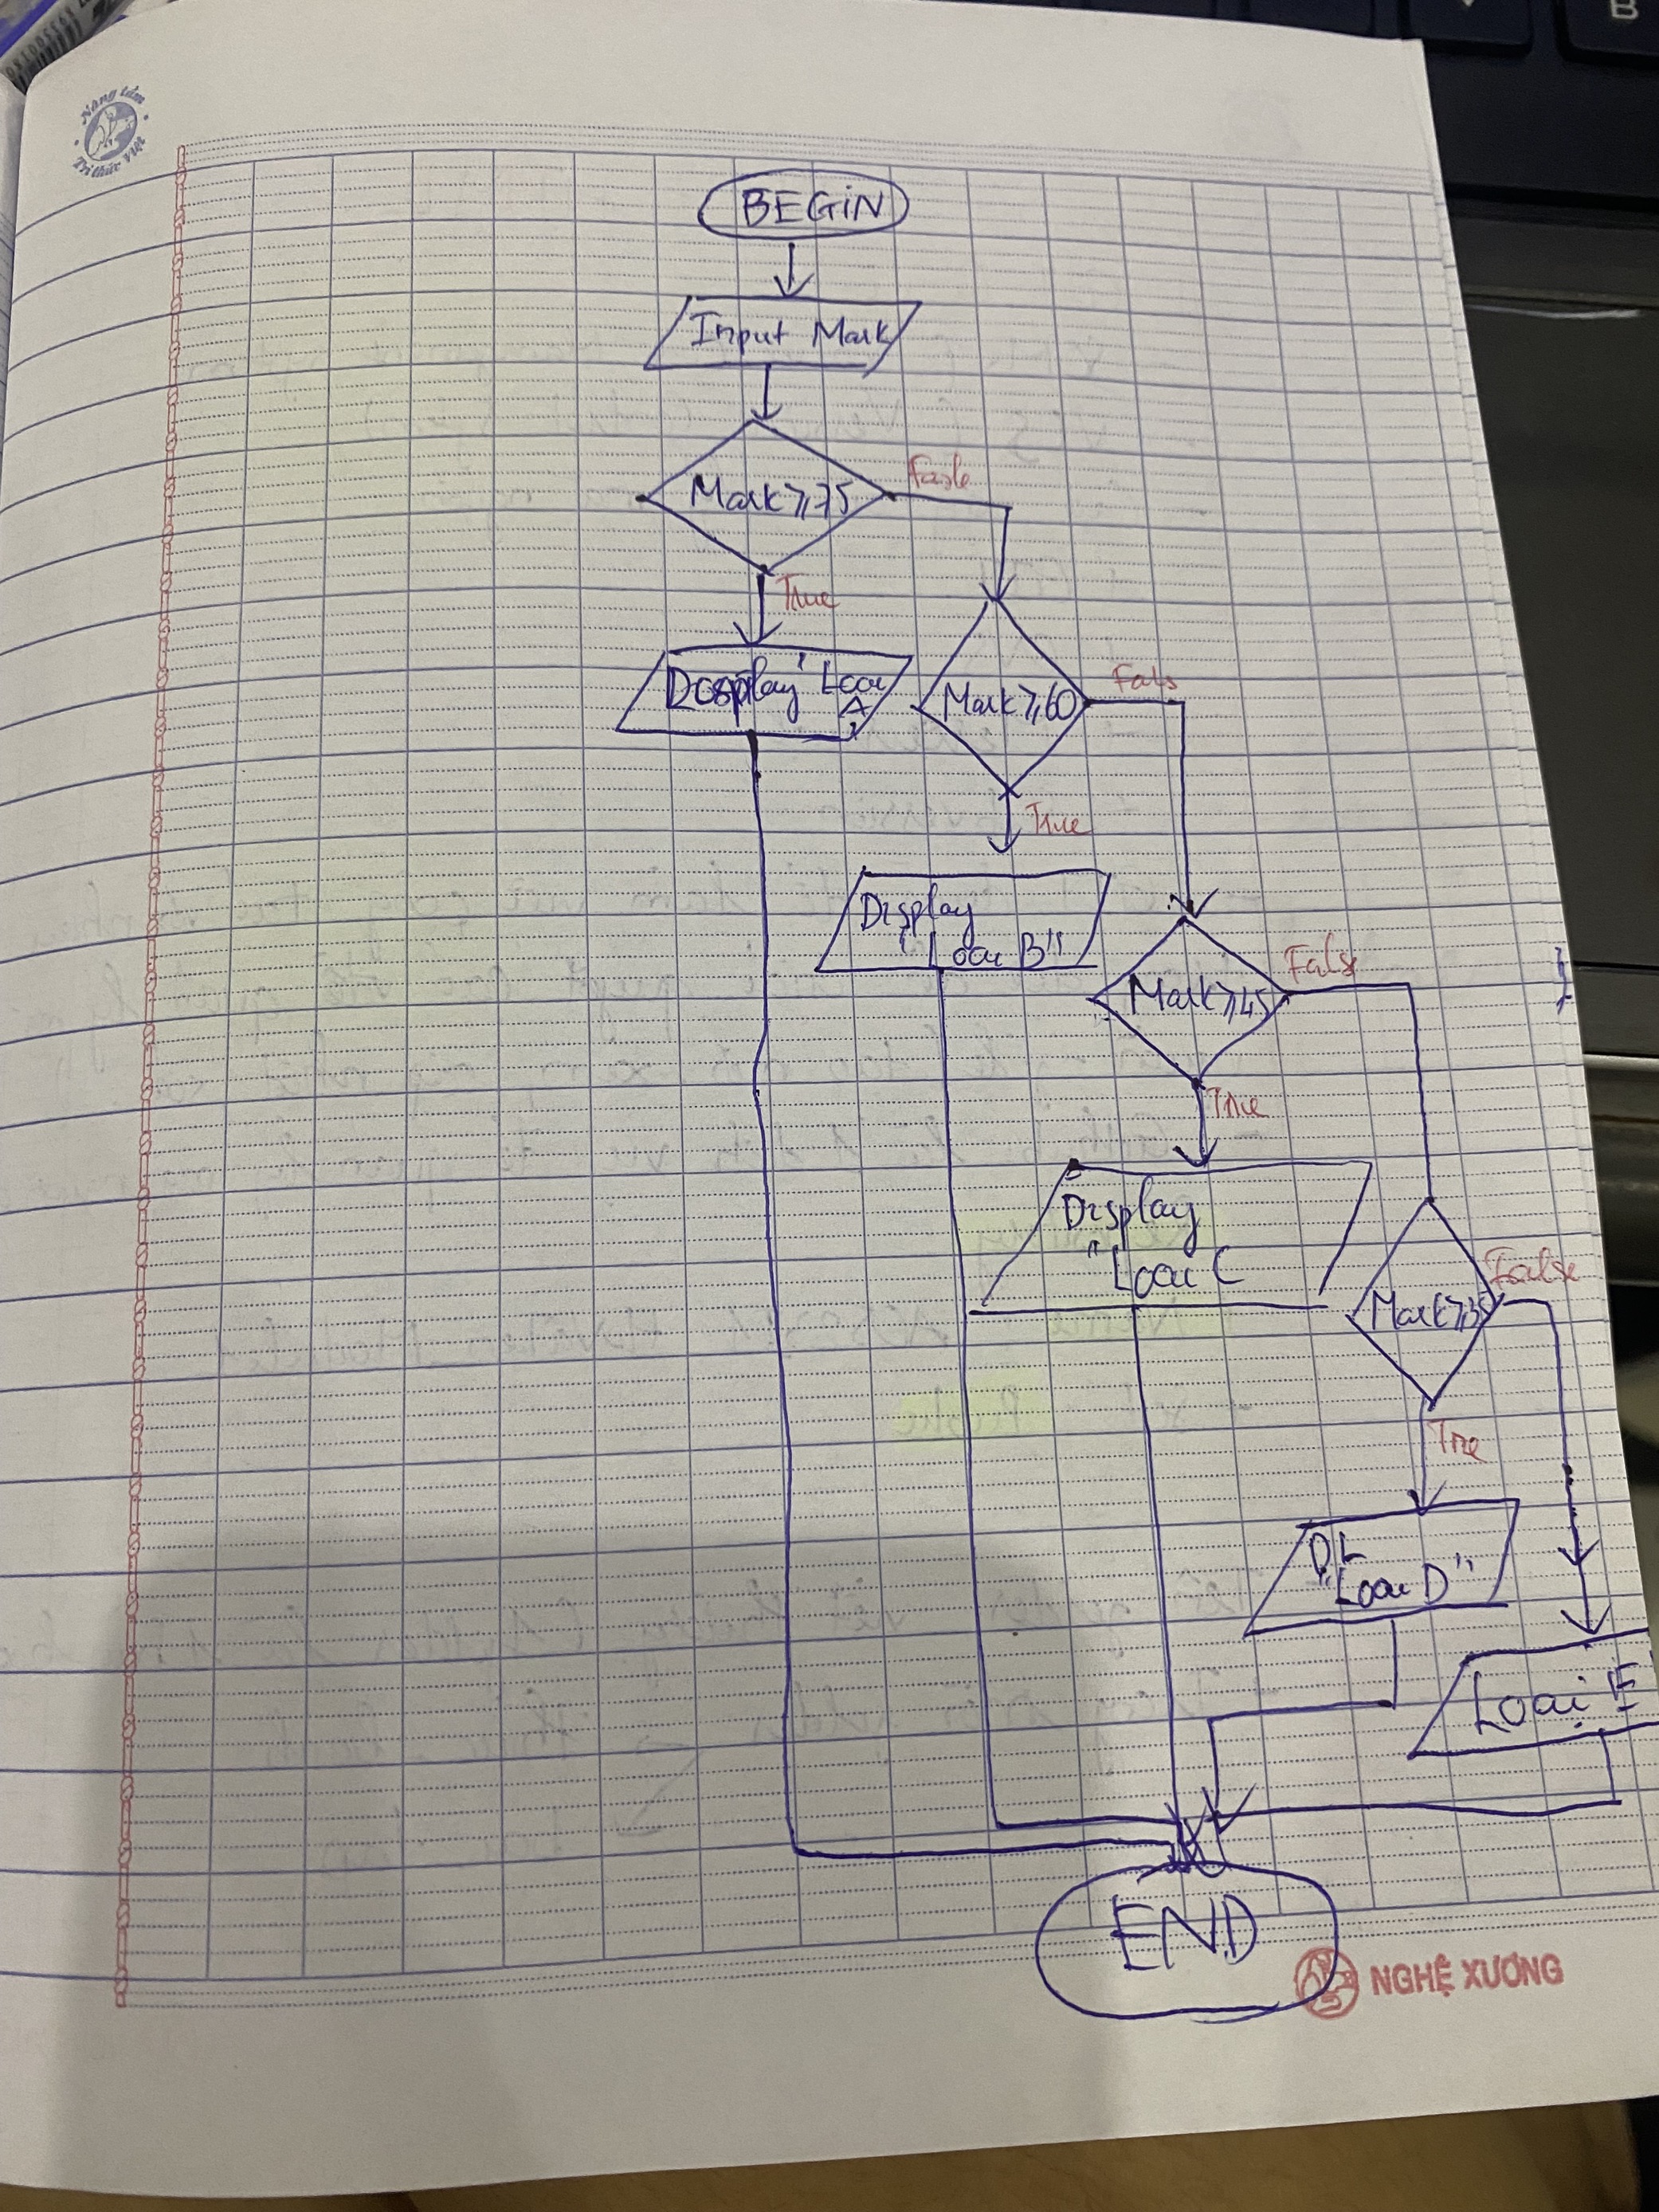 Nâng tầm
Tri thức Việt
BEGIN
Input Mark
Mark ≥ 75
Fasle
True
Dosplay "Loại
A"
Mark ≥ 60
Fals
True
Display
"Loại B"
Mark ≥ 45
False
True
Display
"Loại C
Mark ≥ 35
False
Tre
"Loại D"
Loại E
END
NGHỆ XƯƠNG
B